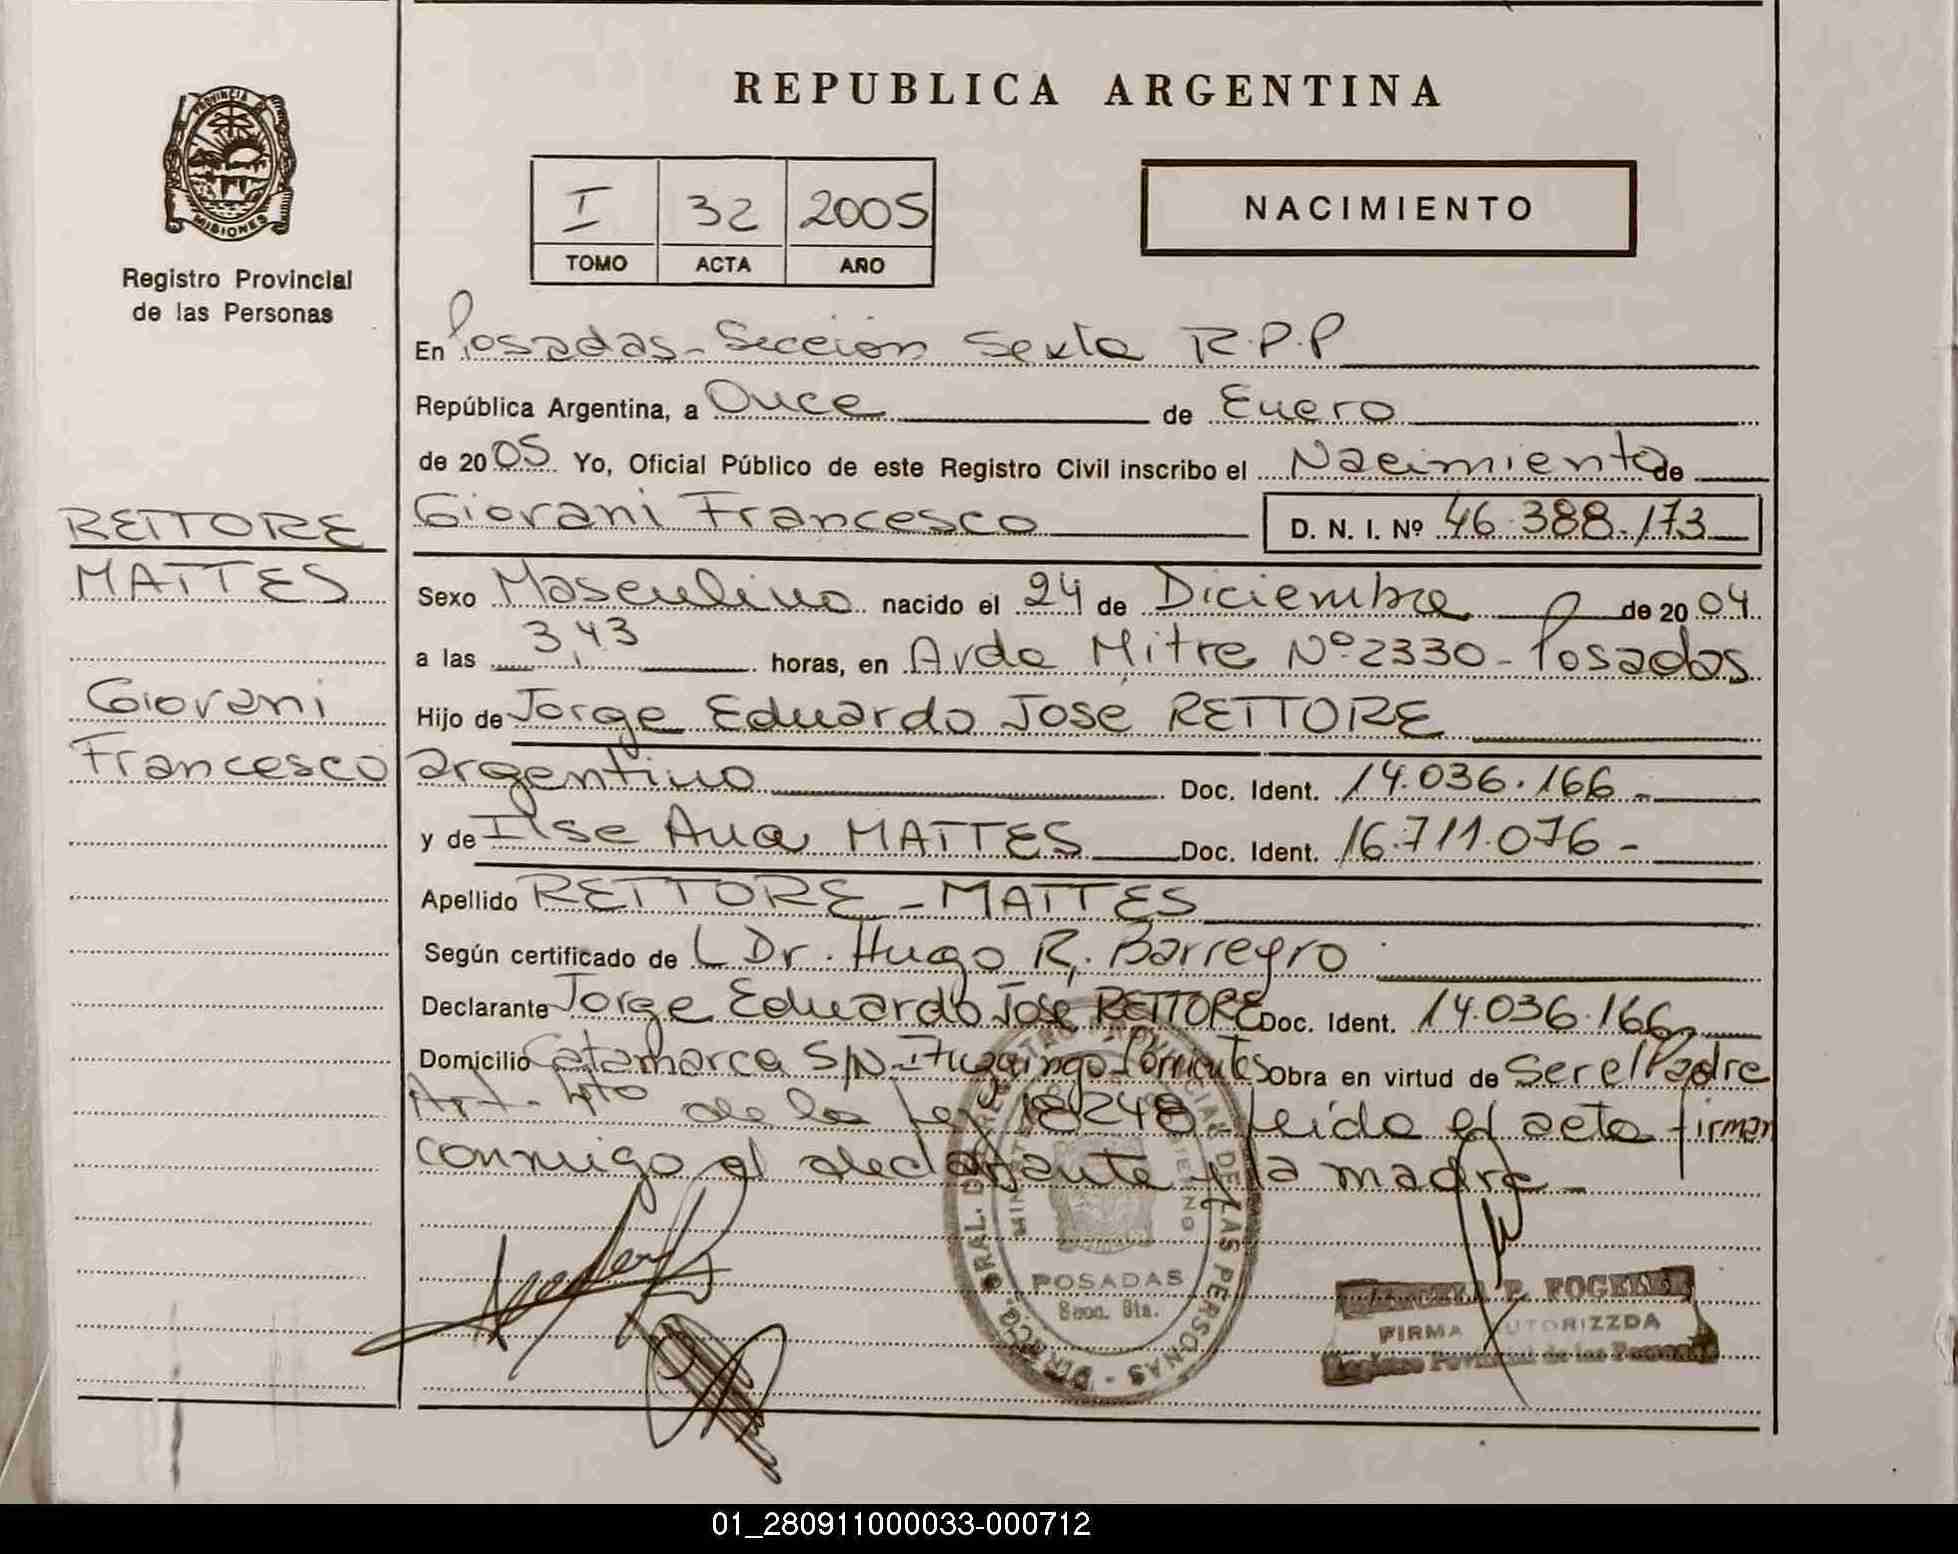 REPUBLICA ARGENTINA
PROVINCIA DE
MISIONES
Registro Provincial
de las Personas
I 32 2005
TOMO ACTA AÑO
NACIMIENTO
En Posadas - Sección Sexta R.P.P
República Argentina, a Once de Enero
de 2005 Yo, Oficial Público de este Registro Civil inscribo el Nacimiento de
RETTORE
MATTES
Giovani
Francesco
Giovani Francesco D. N. I. Nº 46.388.173
Sexo Masculino nacido el 24 de Diciembre de 2004
a las 3,43 horas, en Avda Mitre Nº 2330 - Posadas
Hijo de Jorge Eduardo José RETTORE
argentino Doc. Ident. 14.036.166 -
y de Ilse Ana MATTES Doc. Ident. 16.711.076 -
Apellido RETTORE - MATTES
Según certificado de L Dr. Hugo R. Barreyro
Declarante Jorge Eduardo José RETTORE Doc. Ident. 14.036.166
Domicilio Catamarca S/N - Ituzaingo - Corrientes Obra en virtud de Ser el Padre
Art. 4to de la Ley 18248 - Leida el acta firman
conmigo el declarante y la madre -
DE LAS PERSONAS
POSADAS
Secc. 6ta.
P. FOGELER
FIRMA AUTORIZZDA
de las Personas
01_280911000033-000712